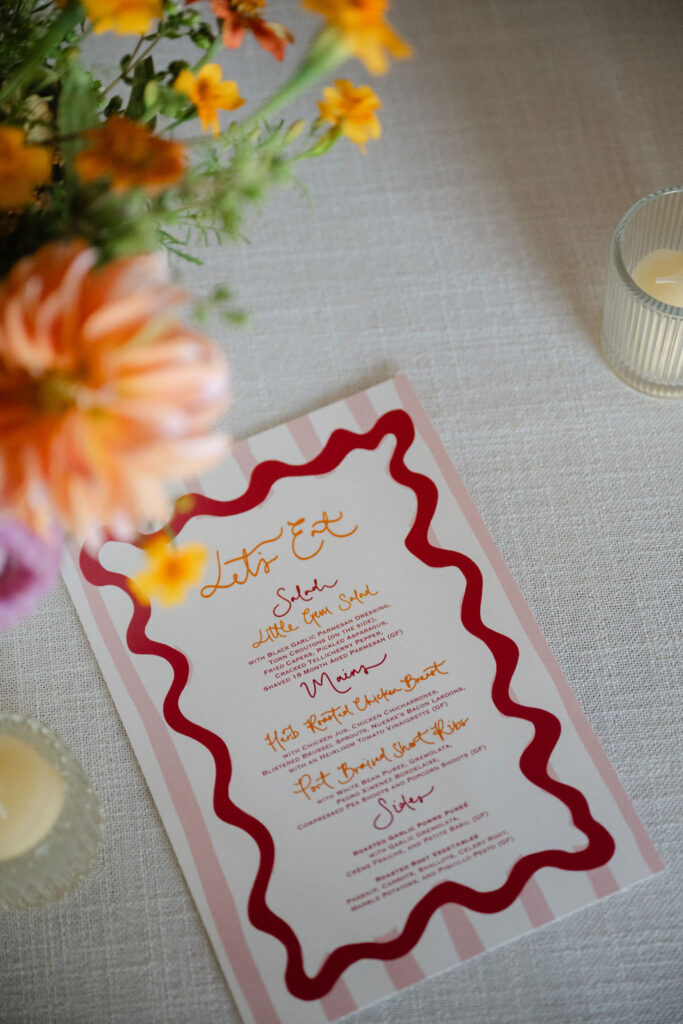 Let's Eat
Salad
Little Gem Salad
with Black Garlic Parmesan Dressing,
Torn Croutons (on the side),
Fried Capers, Pickled Asparagus,
Cracked Tellicherry Pepper,
Shaved 18 Month Aged Parmesan (GF)
Mains
Herb Roasted Chicken Breast
with Chicken Jus, Chicken Chicharrones,
Blistered Brussel Sprouts, Nueske's Bacon Lardons,
with an Heirloom Tomato Vinaigrette (GF)
Port Braised Short Ribs
with White Bean Purée, Gremolata,
Pedro Ximenez Bordelaise,
Compressed Pea Shoots and Popcorn Shoots (GF)
Sides
Roasted Garlic Pomme Pureé
with Garlic Gremolata,
Crème Fraiche, and Petite Basil (GF)
Roasted Root Vegetables
Parsnip, Carrots, Shallots, Celery Root,
Marble Potatoes, and Piquillo Pesto (GF)